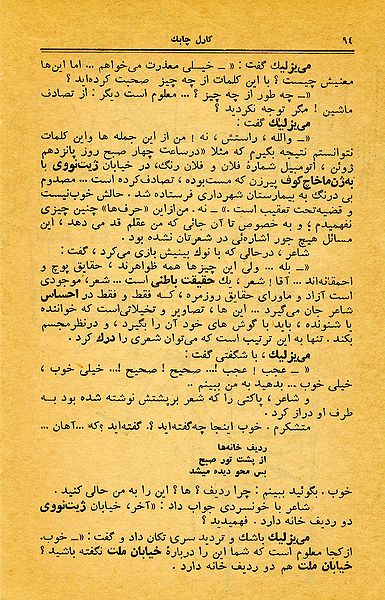 ۹٤ کارل چاپك
می‌یزلیك گفت : «ـ خیـلی معذرت می‌خواهم ... اما این‌ها
معنیش چیست ؟ با این کلمات از چه چیز صحبت کرده‌اید ؟
«ـ چه طور از چه چیز ؟ ... معلوم است دیگر : از تصادف
ماشین ! مگر توجه نکردید ؟
می‌یزلیك گفت :
«ـ والله ، راستش ، نه ! من از این جمله ها واین کلمات
نتوانستم نتیجه بگیرم که مثلا «درساعت چهار صبح روز پانزدهم
ژوئن ، اتومبیل شمارهٔ فلان و فلان رنگ، در خیابان ژیت‌نووی با
به‌ژن‌ماخاچ‌کوف پیرزن که مست‌بوده ، تصادف‌کرده است ... مصدوم
بی درنگ به بیمارستان شهرداری فرستاده شد . حالش خوب‌نیست
و قضیه‌تحت تعقیب است .» ـ نه . من‌ازاین «حرف‌ها» چنین چیزی
نفهمیدم ، و به خصوص تا آن جائی که من عقلم قد می دهد ، این
مسائل هیچ جور اشاره‌ئی در شعرتان نشده بود .
شاعر ، درحالی که با نوك بینیش بازی می‌کرد ، گفت :
«ـ بله ... ولی این چیزها همه ظواهرند ، حقایق پوچ و
احمقانه‌اند ... آقا ! شعر ، یك حقیقت باطنی است ... شعر، موجودی
است آزاد و ماورای حقایق روزمره ، کـه فقط و فقط در احساس
شاعر جان می‌گیرد ... این ها ، تصاویر و تخیلاتی‌است که خواننده
یا شنونده ، باید با گوش های خود آن را بگیرد ، و درنظرمجسم
بکند . تنها به این ترتیب است که می‌توان شعری را درك کرد .
می‌یزلیك ، با شگفتی گفت :
«ـ عجب ! عجب !... صحیح ! صحیح !... خیلی خوب ،
خیلی خوب ... بدهید به من ببینم ..
و شاعر ، پاکتی را که شعر برپشتش نوشته شده بود بـه
طرف او دراز کرد .
متشکرم . خوب اینجا چه‌گفته‌اید ؟. گفته‌اید ؟که ...آهان ...
ردیف خانه‌ها
از پشت تور صبح
بس محو دیده میشد
خوب . بگوئید ببینم : چرا ردیف ؟ ها ؟ این را به من حالی کنید .
شاعر با خونسردی جواب داد : «آخر، خیابان ژیت‌نووی
دو ردیف خانه دارد . فهمیدید ؟
می‌یزلیك باشك و تردید سری تکان داد و گفت : «ـ خوب.
ازکجا معلوم است که شما این را دربارهٔ خیابان ملت نگفته باشید ؟
خیابان ملت هم دو ردیف خانه دارد .